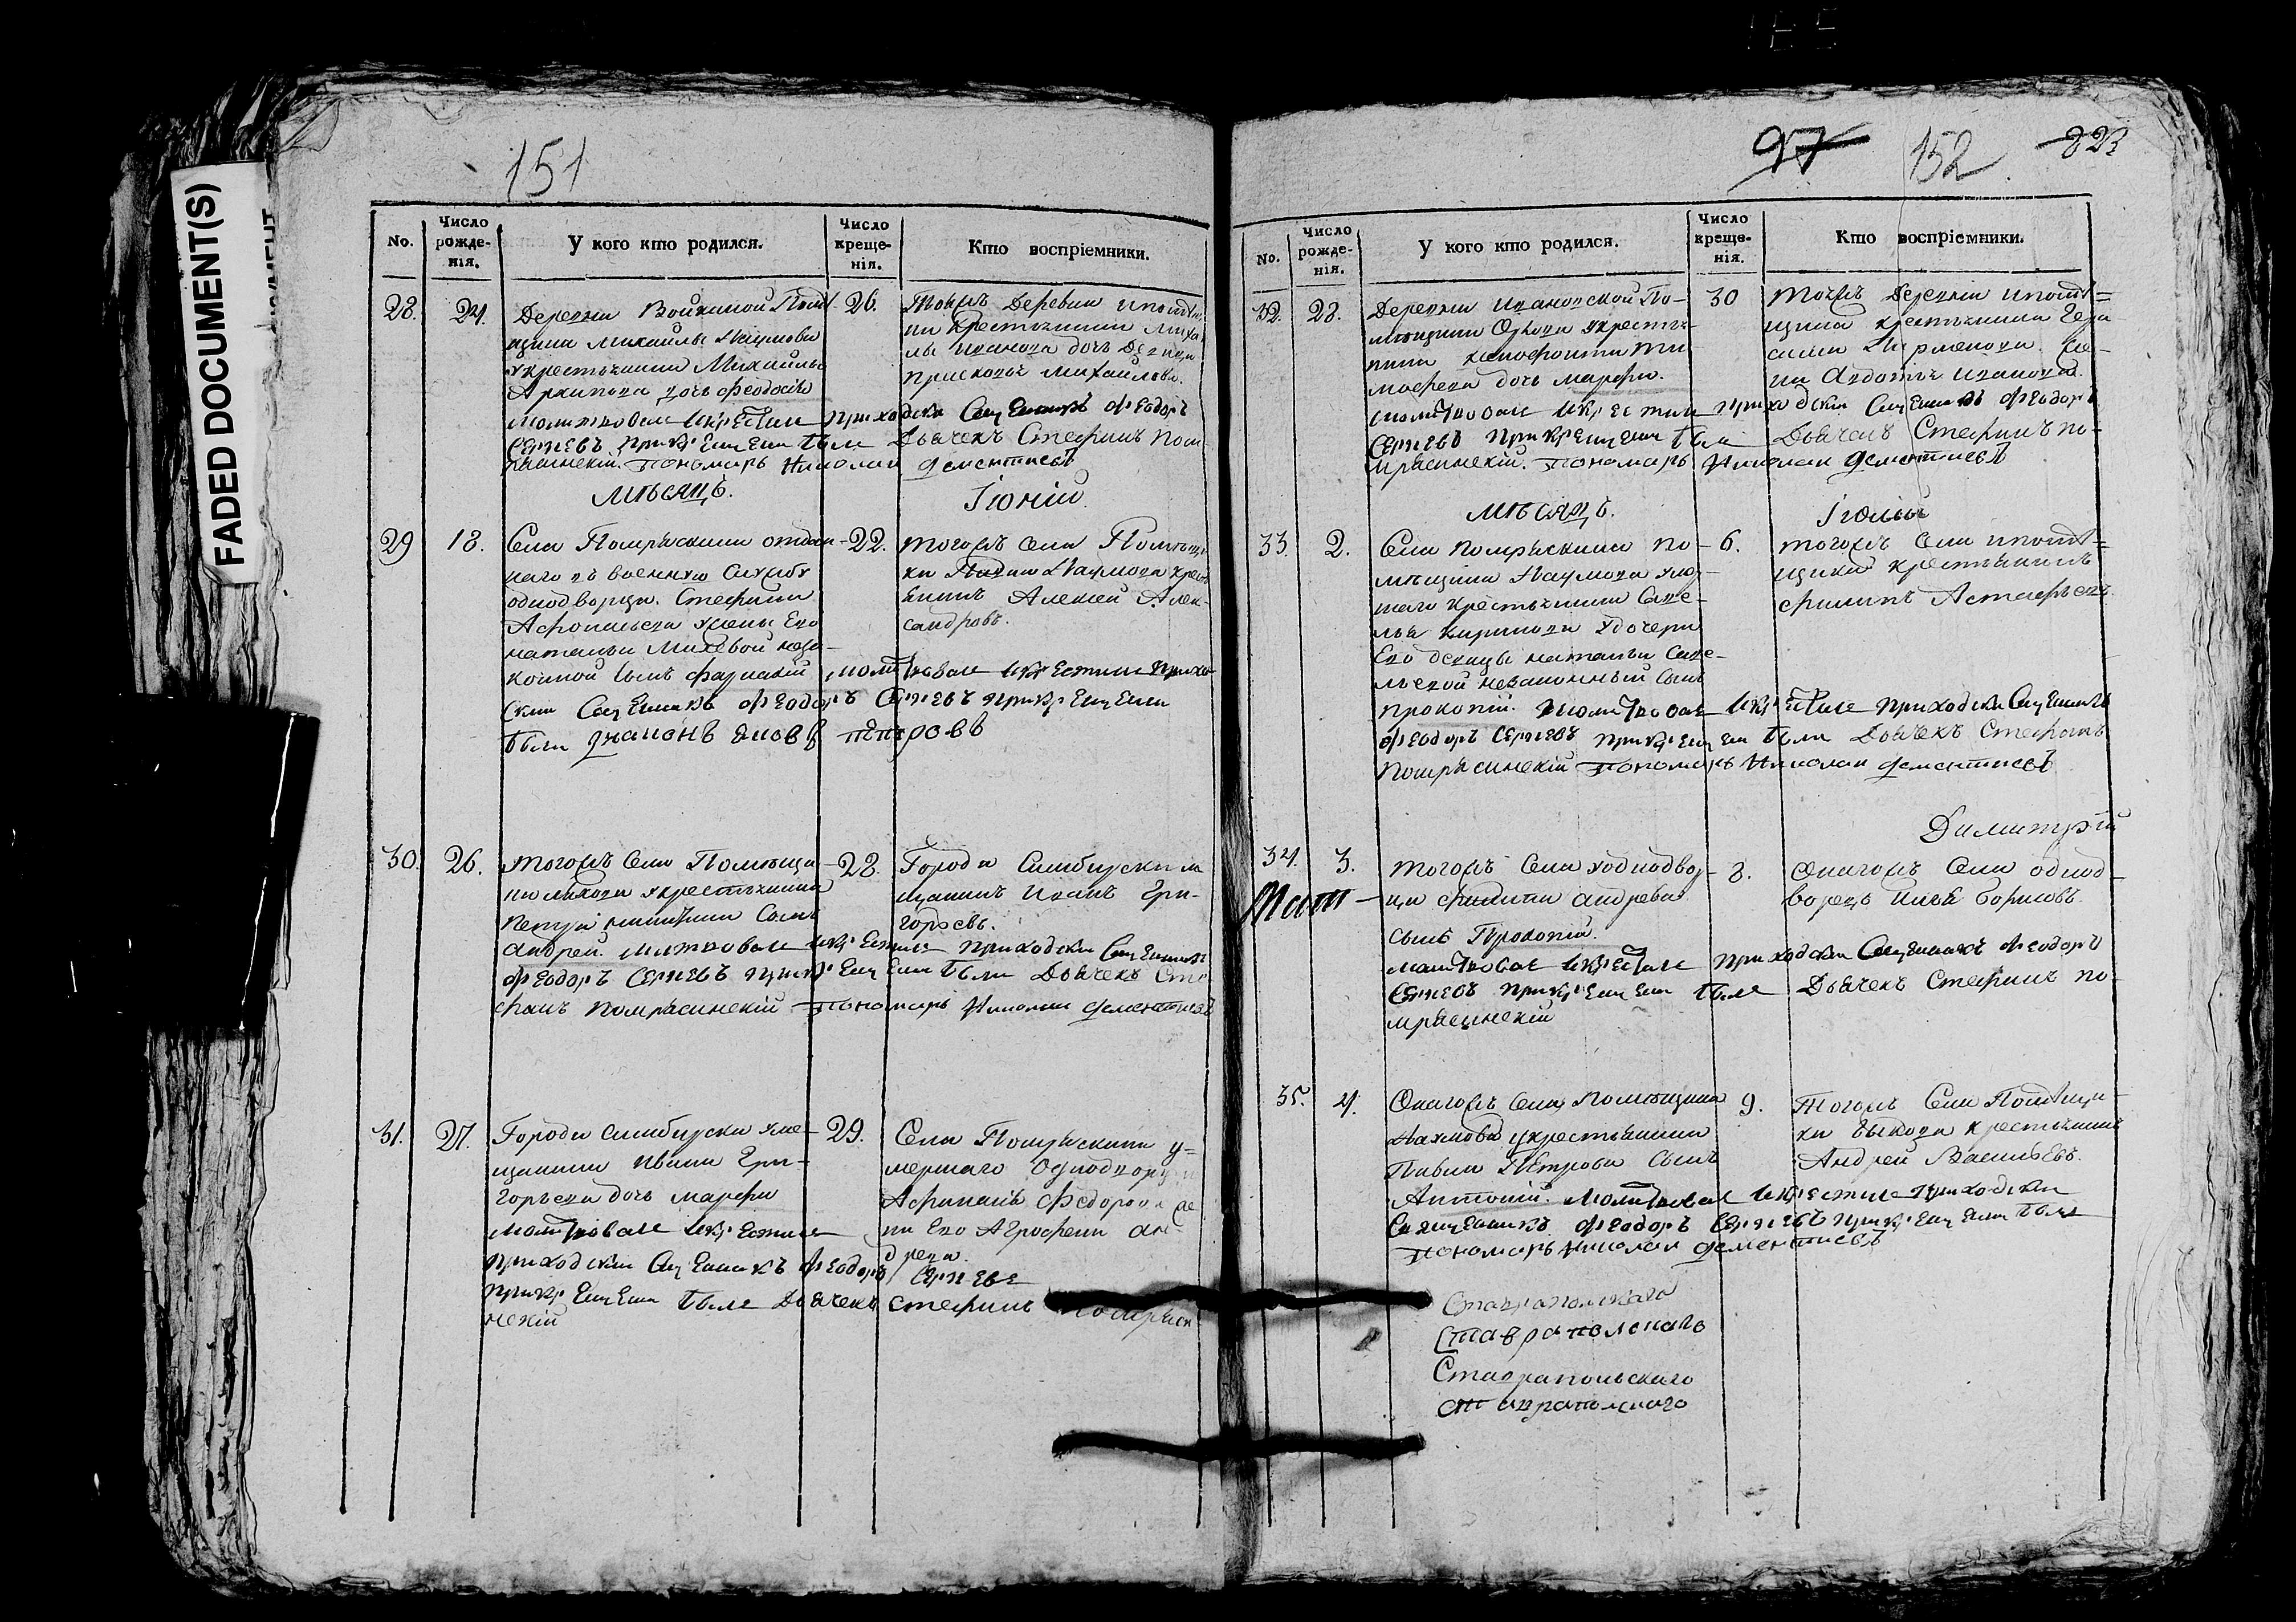 FADED DOCUMENT(S)
151
No.
Число рожде-нія.
У кого кто родился.
Число креще-нія.
Кто воспріемники.
28. 24.
Деревни Войкиной Помѣ
щика Михайлы Наумова
укрестьянина Михайлы
Архипова дочь феодосія
26.
Тойжъ Деревни ипомѣщи
ка Крестьянина Михай
лы Иванова дочь Девица
Прасковья Михайлова.
Молитвовалъ икрестилъ приходски Священникъ Феодоръ
Сергѣевъ прикрещени были Дьячекъ Стефанъ Пом
рясинскій. Пономарь Николай дементиевъ
Мѣсяцъ. Iюній
29 18.
Села Помряскина отдан-
наго въ военную Службу
однодворца. Стефана
Афонасьева ужены Его
натальи Михевой незо-
конной сынъ
22.
тогожъ села Помѣщи
ка Наумова крест
янинъ Алексей Алек-
сандровъ.
молитвовалъ икрестилъ прихо-
Скии Священникъ Феодоръ Сергѣевъ прикрещени
были дьяконъ яковъ петровъ
30. 26.
тогожъ Села Помѣщи
укрестьянина
Петра никитина Сынъ
Андрей.
28.
Города Симбирска м
щанинъ Иванъ Гри-
горьевъ.
молитвовалъ икрестилъ приходски Священникъ
Феодоръ Сергѣевъ прикрещени были Дьячекъ Сте
фанъ Помрясинскій Пономарь Николай дементиевъ
31. 27.
Города симбирска уме-
щанина ивана Гри-
горьева дочь марфа
29.
Села Помряскина у=
мершаго Однодворца
Афанасія Федорова же
ны Его Агрофены Ан
дреева.
молитвовалъ икрестилъ
приходски Священникъ Феодоръ Сергѣевъ
прикрещени были Дьячекъ Стефанъ Помряси
нскій
97 152 223
No.
Число рожде-нія.
У кого кто родился.
Число креще-нія.
Кто воспріемники.
32. 28.
Деревни Ивановской По-
мѣщика укрестья-
нина Ти
мофеева дочь марфа.
30
Тойжъ Деревни ипомѣ=
щика крестьянина Гера
сима же-
на Авдотья Иванова.
молитвовалъ икрестилъ приходски Священникъ Феодоръ
Сергѣевъ прикрещени были Дьячекъ Стефанъ по-
мрясинскій. Пономарь Николай дементиевъ
Мѣсяцъ. Iюлій
33. 2.
Села помряскина по-
мѣщика Наумова умер-
шаго крестьянина Саве-
лья Кирилова удочери
Его девицы натальи Саве-
льевой незаконный сынъ
прокопій.
6.
тогожъ Села ипомѣ=
щика крестьянинъ
филипъ Астафьевъ.
молитвовалъ икрестилъ приходски Священникъ
Феодоръ Сергѣевъ прикрещени были Дьячекъ Стефанъ
Помрясинскій Пономарь Николай дементиевъ
Димитрій
34. 3.
тогожъ Села уоднодвор-
ца никиты андреева
сынъ Прокопій.
8.
Онагожъ Села однод-
ворецъ Илья борисовъ.
молитвовалъ икрестилъ приходски Священникъ Феодоръ
Сергѣевъ прикрещени были Дьячекъ Стефанъ по-
мрясинскій
35. 4.
Онагожъ села Помѣщика
Наумова укрестьянина
Павла Петрова Сынъ
Антоній.
9.
Тогожъ Села Помѣщи-
ка Быкова крестьянинъ
Андрей Васильевъ.
молитвовалъ икрестилъ приходски
Священникъ Феодоръ Сергѣевъ прикрещени были
Пономарь Николай дементиевъ
Ставропольскаго
Ставропольскаго
Ставропольскаго
Ставропольскаго